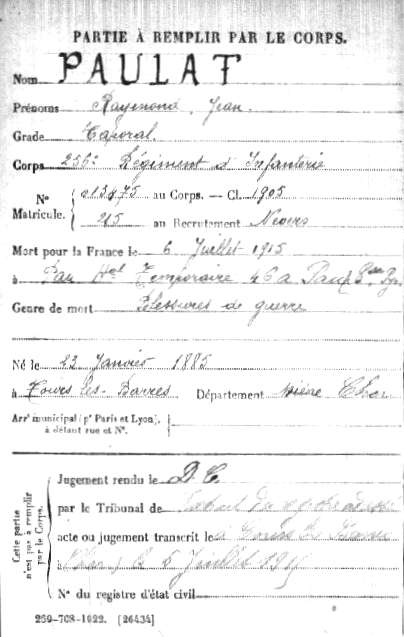 PARTIE À REMPLIR PAR LE CORPS.
Nom PAULAT
Prénoms Raymond, Jean.
Grade Caporal.
Corps 256e Régiment d'Infanterie
N° 013475 au Corps. — Cl. 1905
Matricule. 215 au Recrutement Nevers
Mort pour la France le 6 Juillet 1915
à Pau Hel Temporaire 46 a Pau
Genre de mort Blessures de guerre
Né le 23 Janvier 1885
à Cours les-Barres Département Cher
Arrt municipal (pr Paris et Lyon),
à défaut rue et N°.
Cette partie
n'est pas à remplir
par le Corps.
Jugement rendu le D. C.
par le Tribunal de
acte ou jugement transcrit le à Cours les Barres
à le 5 Juillet
N° du registre d'état civil
259-708-1922. [26434]